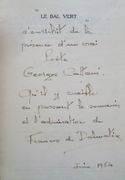 "LE BAL VERT"
s'enrichit de la
présence d'un vrai
Poète
Georges
Qu'il y cueille
en passant le souvenir
et l'admiration de
François de
Juin 1954